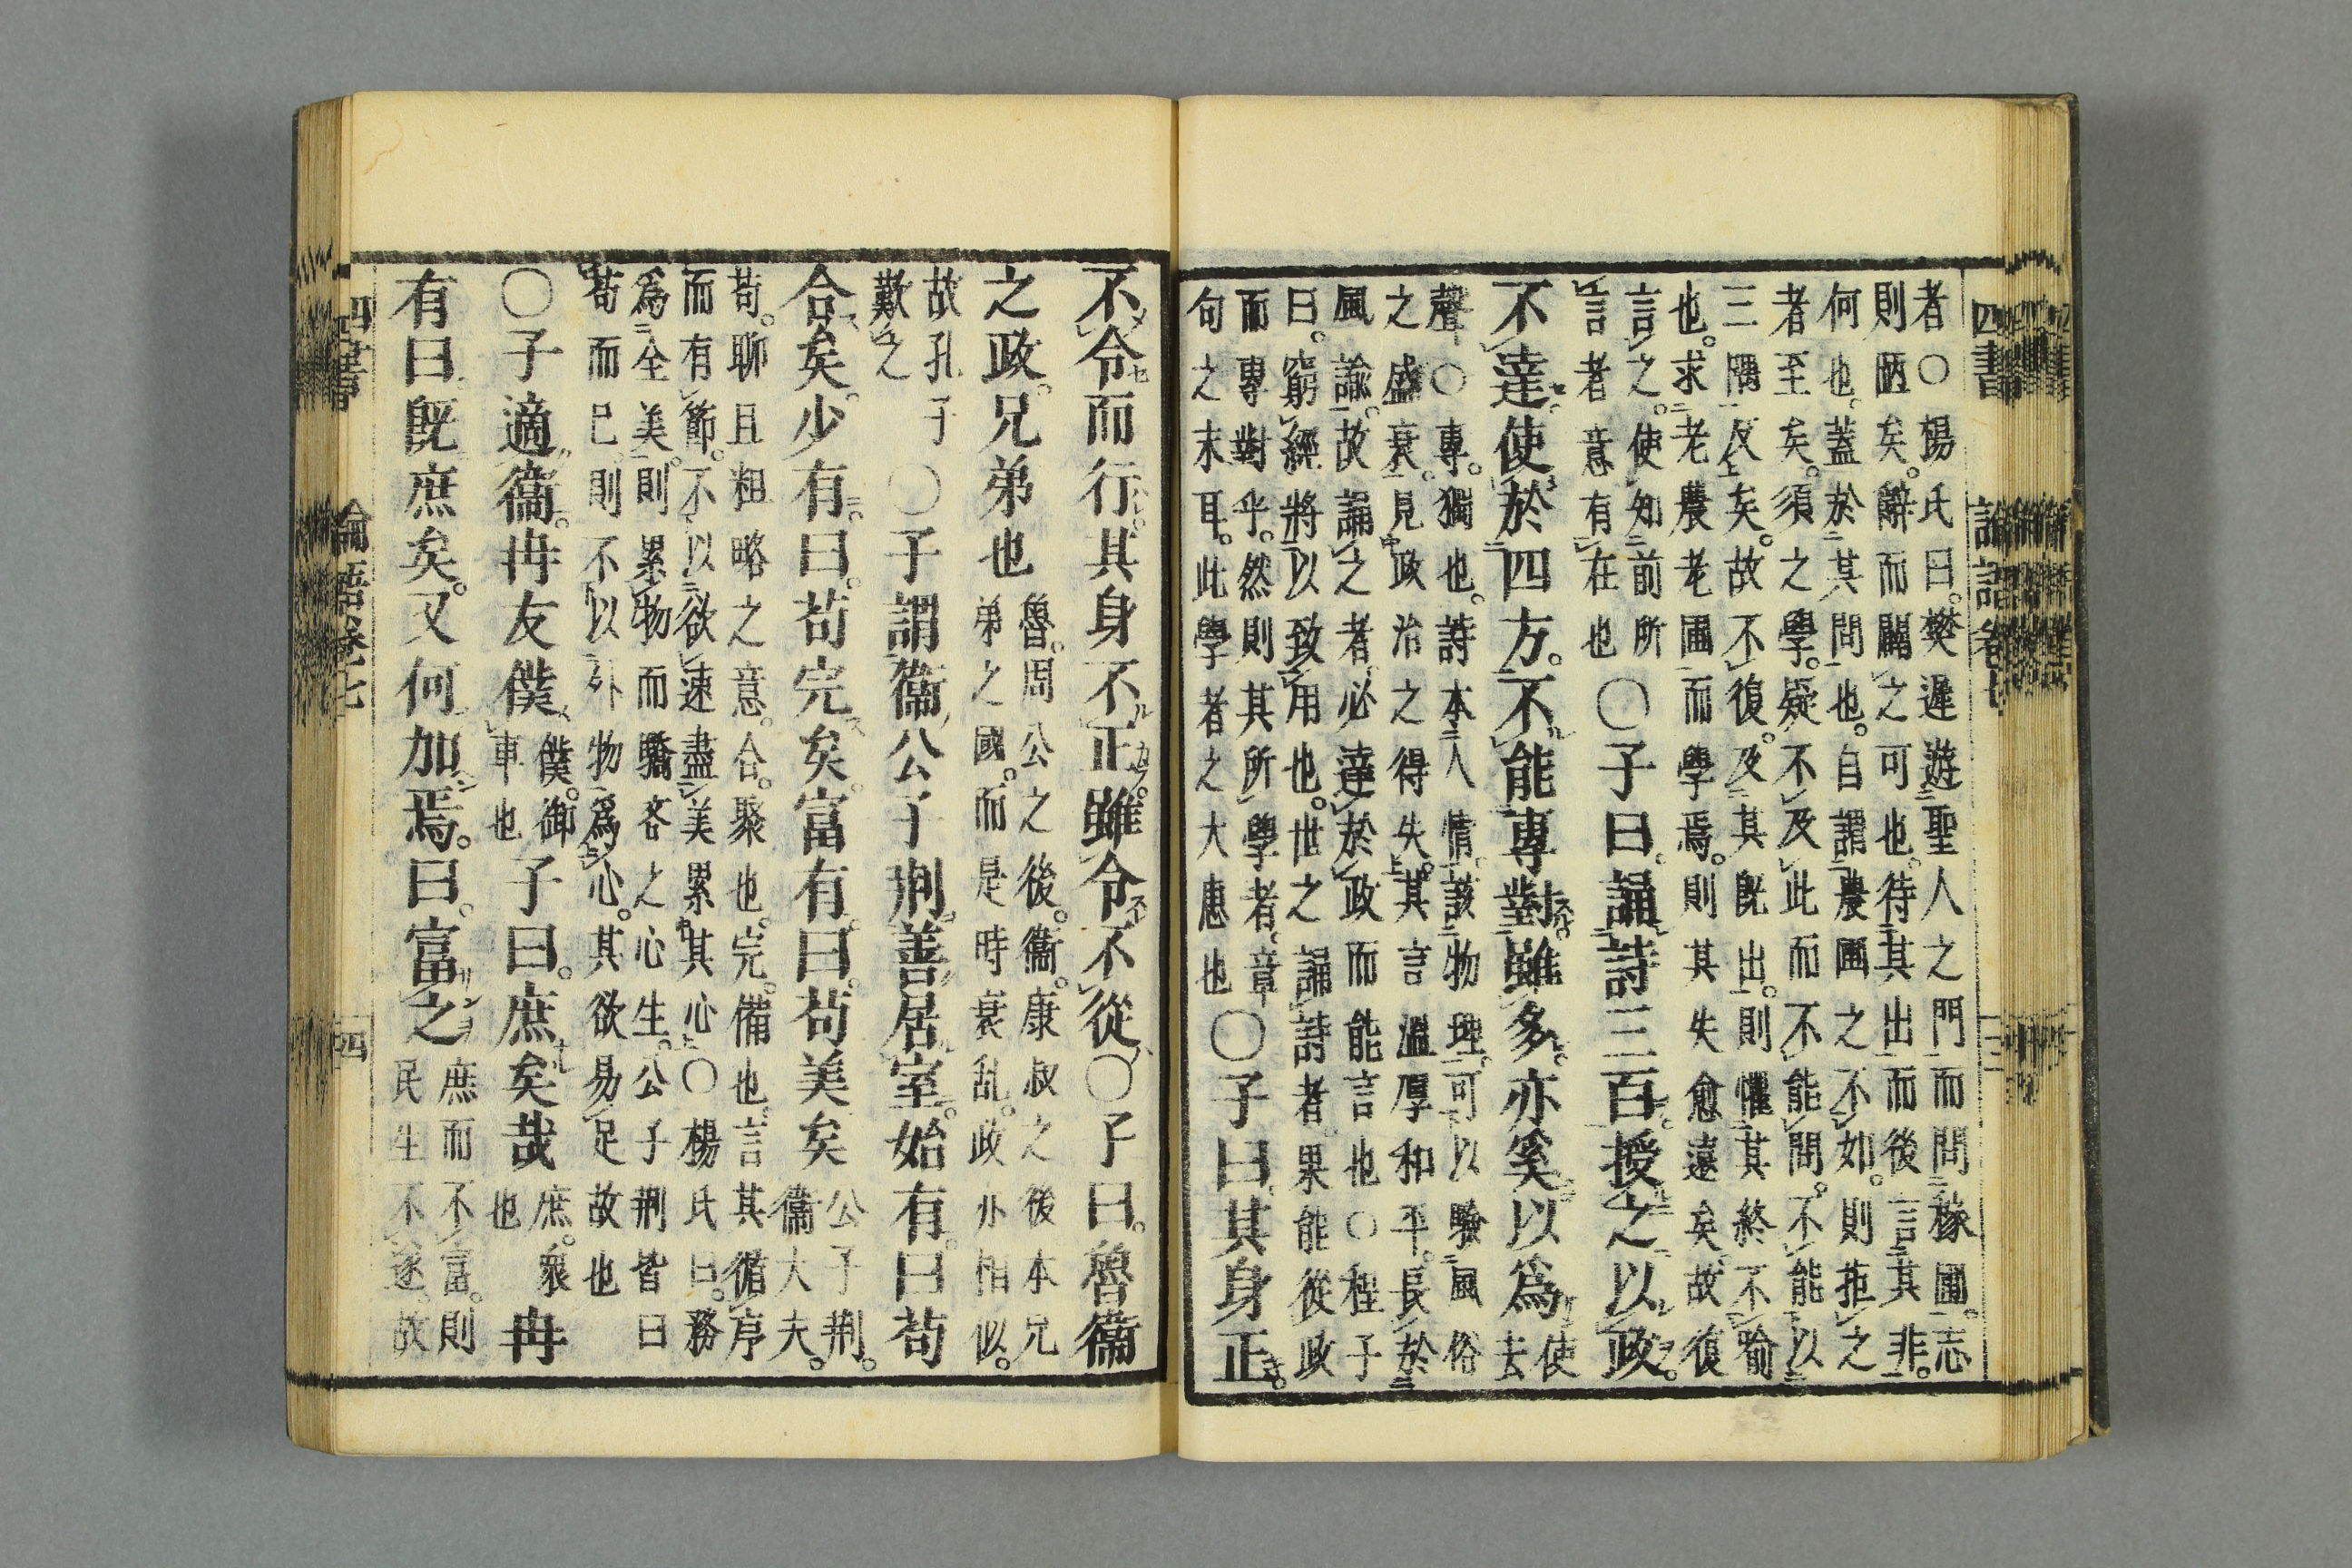 四書 論語卷七 三
者○楊氏曰樊遲遊聖人之門而問稼圃志
則陋矣辭而闢之可也待其出而後言其非
何也蓋於其問也自謂農圃之不如則拒之
者至矣須之學疑不及此而不能問不能以
三隅反矣故不復及其既出則懼其終不喻
也求老農老圃而學焉則其失愈遠矣故復
言之使知前所
言者意有在也
○子曰誦詩三百授之以政
不達使於四方不能專對雖多亦奚以爲
使
去
聲○專獨也詩本人情該物理可以驗風俗
之盛衰見政治之得失其言溫厚和平長於
風諭故誦之者必達於政而能言也○程子
曰窮經將以致用也世之誦詩者果能從政
而專對乎然則其所學者章
句之末耳此學者之大患也
○子曰其身正
不令而行其身不正雖令不從○子曰魯衞
之政兄弟也
魯周公之後衞康叔之後本兄
弟之國而是時衰乱政亦相似
故孔子
歎之
○子謂衞公子荆善居室始有曰苟
合矣少有曰苟完矣富有曰苟美矣
公子荆
衞大夫
苟聊且粗略之意合聚也完備也言其循序
而有節不以欲速盡美累其心○楊氏曰務
爲全美則累物而驕吝之心生公子荆皆曰
苟而已則不以外物爲心其欲易足故也
○子適衞冉友僕
僕御
車也
子曰庶矣哉
庶衆
也
冉
有曰既庶矣又何加焉曰富之
庶而不富則
民生不遂故
四書 論語卷七 四